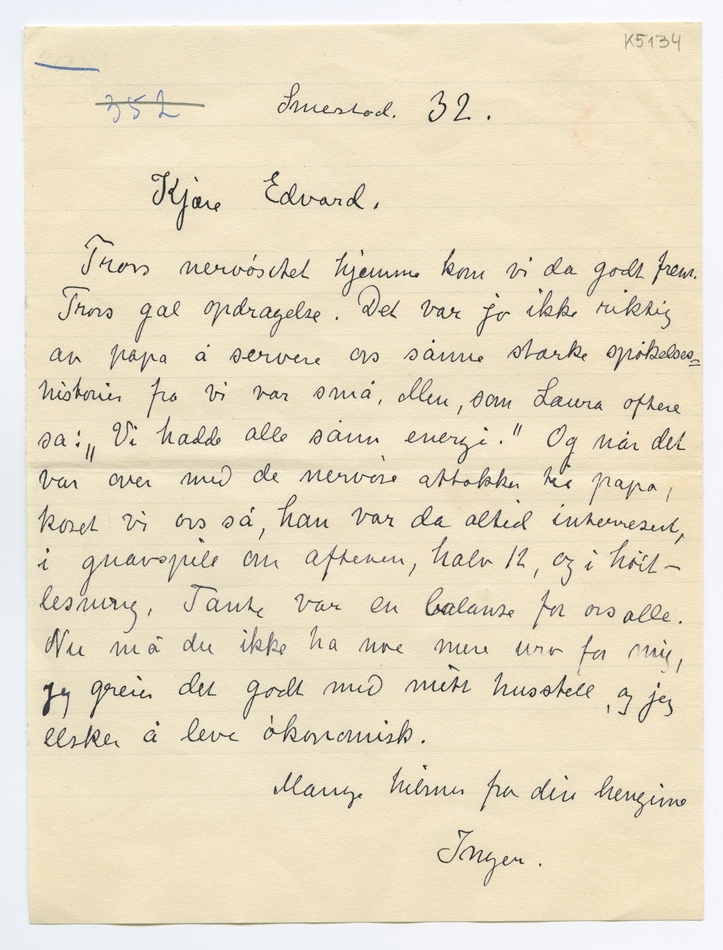 K5134
352
Smestad. 32.
Kjære Edvard.
Trors nervøsitet hjemme kom vi da godt frem.
Trors gal opdragelse. Det var jo ikke riktig
av papa å servere os sånne stærke spökelses=
historier fra vi var små, Men, som Laura oftere
sa: „Vi hadde alle sånn energi." Og når det
var over med de nervøse attakker til papa,
koset vi os så, han var da altid interresert,
i gnavspille om aftenen, halv 12, og i höit-
lesning, Tante var en balanse for os alle.
Nu må du ikke ha noe mere uro for mig,
jeg greier det godt med mitt husstell, og jeg
elsker å leve ökonomisk.
Mange hilsner fra din hengivne
Inger.